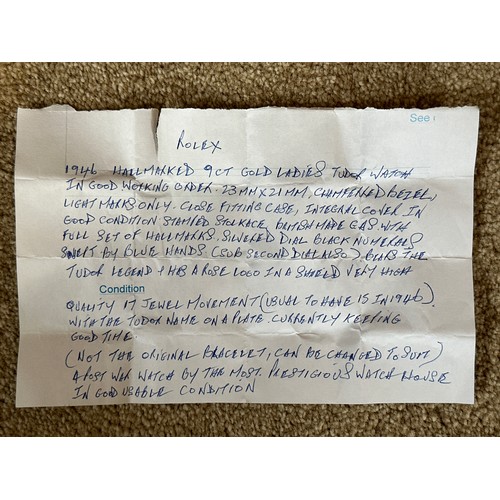 See
ROLEX
1946 HALLMARKED 9CT GOLD LADIES TUDOR WATCH
IN GOOD WORKING ORDER. 23MM X 21MM, CHAMFERED BEZEL,
LIGHT MARKS ONLY. CLOSE FITTING CASE, INTEGRAL COVER IN
GOOD CONDITION STAMPED BRITISH MADE CAS WITH
FULL SET OF HALLMARKS. SILVERED DIAL BLACK NUMERALS
SWEPT BY BLUE HANDS (SUB SECOND DIAL ALSO). BEARS THE
TUDOR LEGEND + HAS A ROSE LOGO IN A SHIELD VERY HIGH
Condition
QUALITY 17 JEWEL MOVEMENT (USUAL TO HAVE 15 IN 1946).
WITH THE TUDOR NAME ON A PLATE. CURRENTLY KEEPING
GOOD TIME.
(NOT THE ORIGINAL BRACELET, CAN BE CHANGED TO SUIT)
A POST WAR WATCH BY THE MOST PRESTIGIOUS WATCH HOUSE
IN GOOD USABLE CONDITION